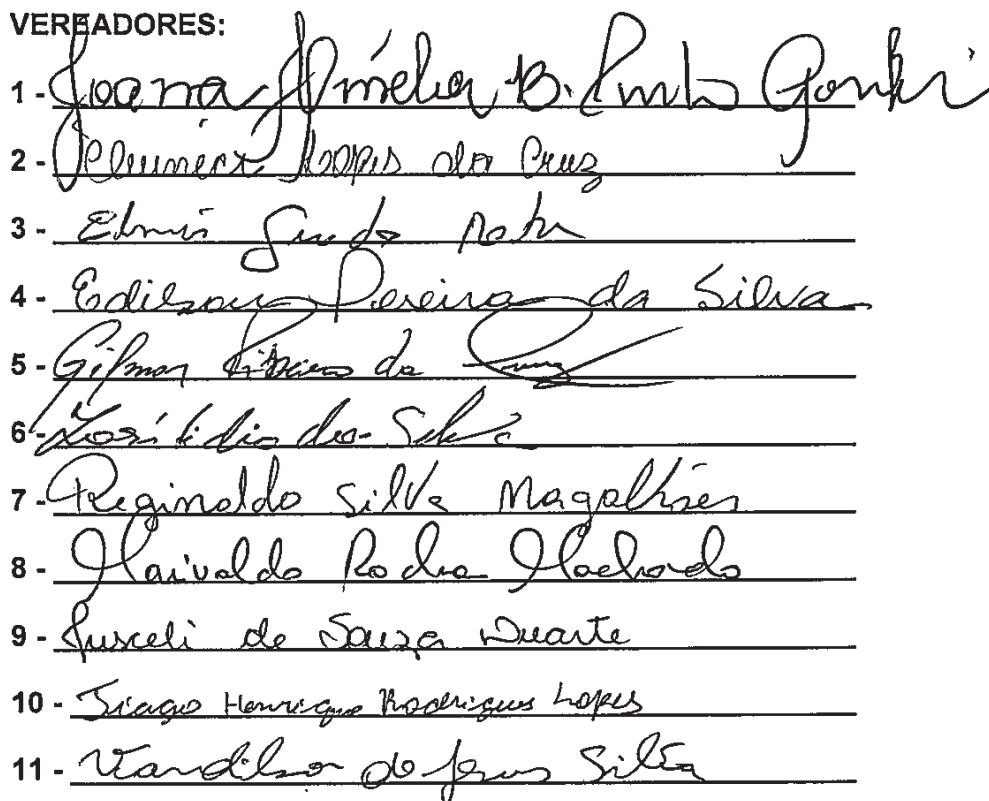 VEREADORES:
1 - Joana Amélia B. Pinto
2 - Lopes da Cruz
3 - Guedes
4 - Edilson Pereira da Silva
5 - Gilmar Ribeiro da Cruz
6 - José Lidio da Silva
7 - Reginaldo Silva Magalhães
8 - Marivaldo Rocha Machado
9 - Jusceli de Souza Duarte
10 - Tiago Henrique Rodrigues Lopes
11 - Vandilson de Jesus Silva